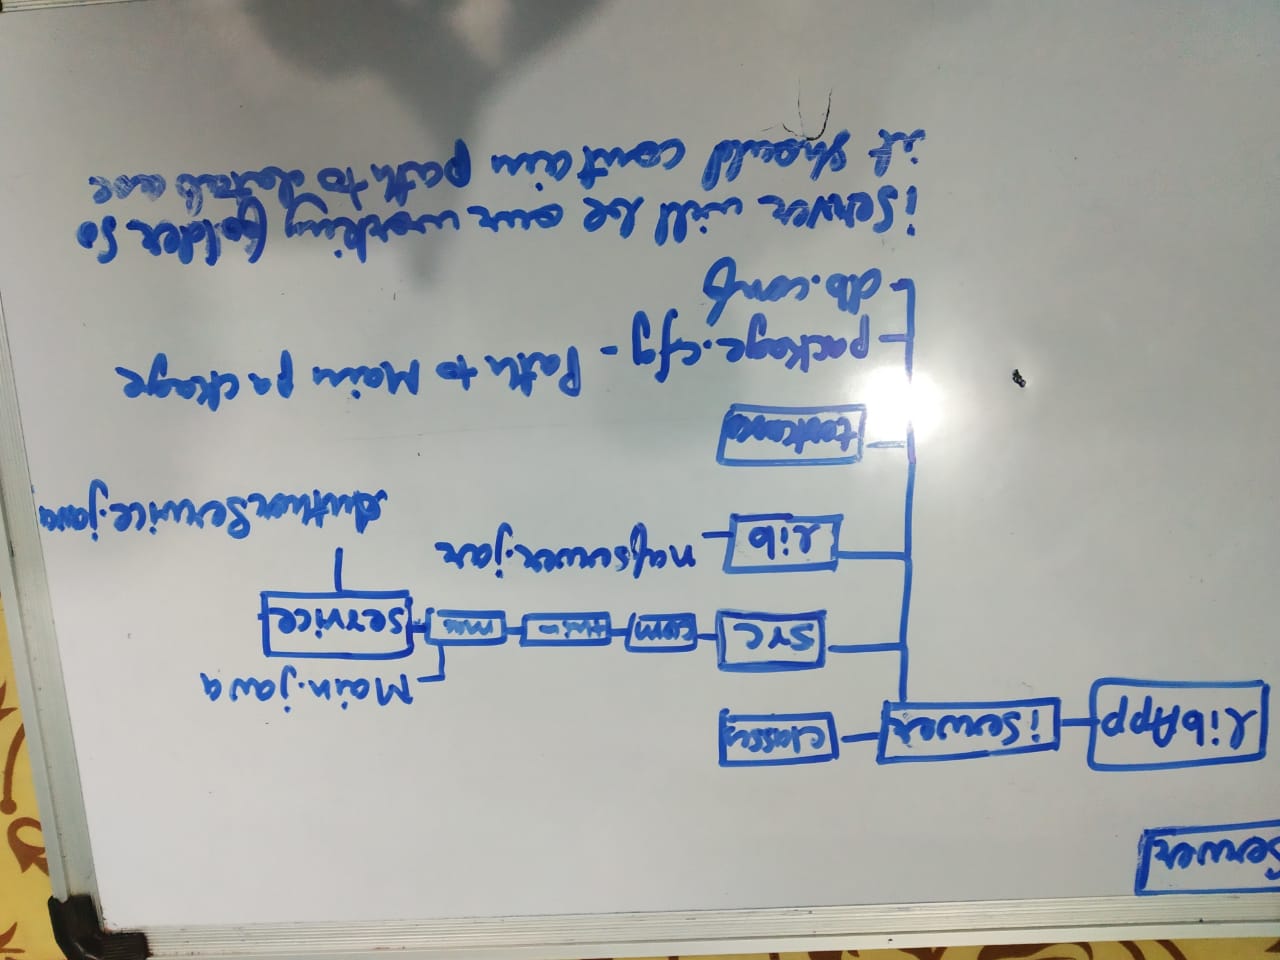 Server
libApp iServer classes
Main.java
src com service
lib nafserver.jar
AuthorService.java
package.cfg - Path to Main package
db.conf
iServer will be our working folder so
it should contain path to database